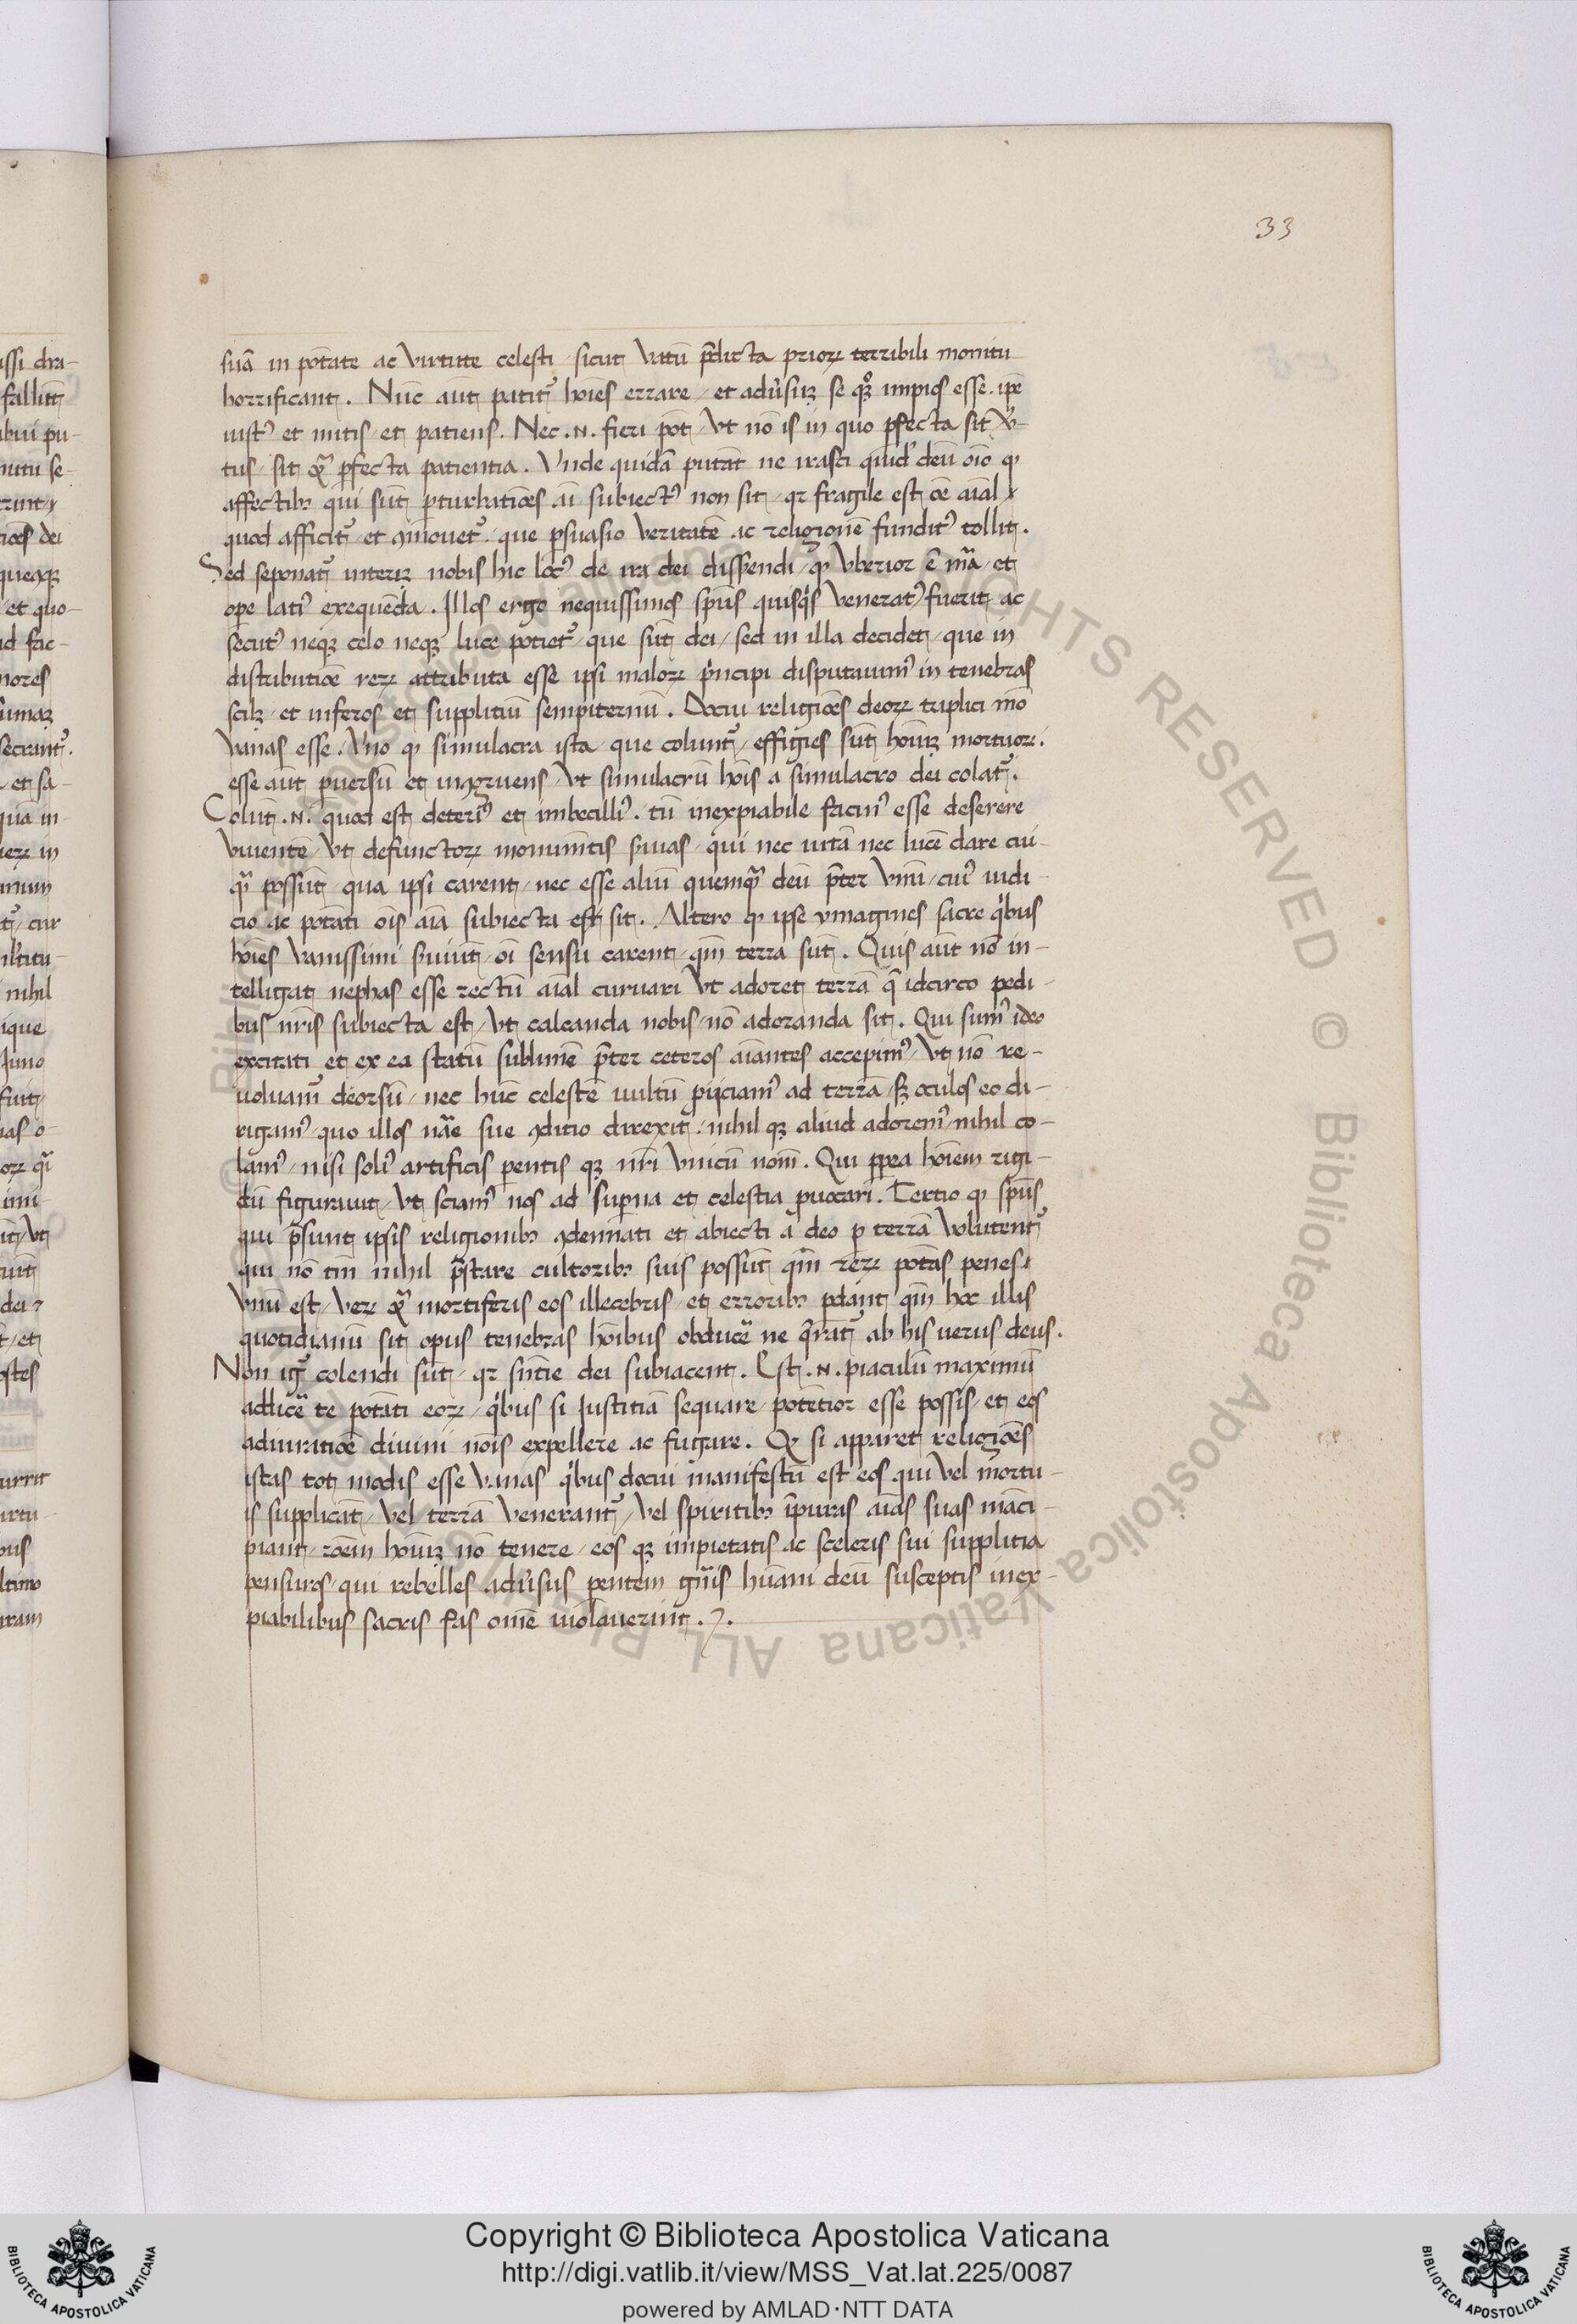 33
suā in potāte ac virtute celesti / sicut vatū p̄dicta prioꝝ terribili monitu
horrificant. Nūc aut̄ patit᷑ hoīes errare / et adu᷑suꝫ se qͦꝫ impios esse. ipē
iustꝰ et mitis / et patiens. Nec .n. fieri pōt / vt nō is in quo ꝑfecta sit v᷑-
tus / sit qᷓ ꝑfecta patientia. Vnde quidā putāt ne irasci quid᷑ deū oīo ꝙ
affectibꝫ qui sūt ꝑturbatiōes aī subiectꝰ non sit / qꝛ fragile est oē aīal /
quod afficit᷑ et ꝯmouet᷑. que ꝑsuasio veritatē ac religionē funditꝰ tollit.
Sed seponat᷑ interiꝫ nobis hic locꝰ de ira dei disserendi / ꝙ vberior ē mᷓa / et
ope latiꝰ exequēda. Illos ergo nequissimos sp̄us quisqͥs veneratꝰ fuerit ac
secutꝰ neqꝫ celo neqꝫ luce potiet᷑ que sūt dei / sed in illa decidet / que in
distributiōe reꝝ attributa esse ipsi maloꝝ pͥncipi disputauimꝰ in tenebras
scilꝫ et inferos et supplitiū sempiternū. Docui religiōes deoꝝ triplici mō
vanas esse. Vno ꝙ simulacra ista que colunt᷑ / effigies sūt hoīuꝫ mortuoꝝ.
esse aut̄ ꝑuersū et incōgruens / vt simulacrū hoīs a simulacro dei colat᷑.
Colūt .n. quod est deteriꝰ et imbecilliꝰ. tū inexpiabile facinꝰ esse deserere
viuentē / vt defunctoꝝ monumētis s᷑uias / qui nec uitā nec lucē dare cui-
qᷓ possūt / qua ipsi carent / nec esse aliū quemqᷓ deū p̄ter vnū / cuiꝰ iudi-
cio ac potāti oīs aīa subiecta est sit. Altero ꝙ ipse ymagines sacre qͥbus
hoīes vanissimi s᷑uiūt / oī sensu carent / qm̄ terra sūt. Quis aūt nō in-
telligat nephas esse rectū aīal curuari vt adoret terrā q̄ idcirco pedi-
bus nr̄is subiecta est / vt calcanda nobis / nō adoranda sit. Qui sumꝰ ideo
excitati et ex ea statū sublimē p̄ter ceteros aīantes accepimꝰ / vt nō re-
uoluamꝰ deorsū / nec hūc celestē uultū ꝓijciamꝰ ad terrā / sꝫ oculos eo di-
rigamꝰ quo illos nāe sue ꝯditio direxit. nihil qꝫ aliud adoremꝰ / nihil co-
lamꝰ / nisi soliꝰ artificis parentis qꝫ nr̄i vnicū nom̄. Qui ꝓpea hoīem rigi-
dū figurauit / vt sciamꝰ nos ad suꝑna et celestia ꝓuocari. Tertio ꝙ sp̄us
qui p̄sunt ipsis religionibꝫ ꝯdemnati et abiecti a deo ꝑ terrā volutent᷑
qui nō tm̄ nihil p̄stare cultoribꝫ suis possūt / qm̄ reꝝ potās penes
vnū est / veꝝ qᷓ mortiferis eos illecebris et erroribꝫ ꝑdant / qm̄ hoc illis
quotidianū sit opus tenebras hoībus obduc᷑e ne q̄rat᷑ ab his uerus deus.
Non ig᷑ colendi sūt / qꝛ sn̄tie dei subiacent. Est .n. piaculū maximū
addic᷑e te potāti eoꝝ / qͥbus si iustitiā sequare / potētior esse possis / et eos
adiuratiōe diuini noīs expellere ac fugare. Qꝫ si apparet religiōes
istas tot modis esse vanas qͥbus docui / manifestū est eos qui vel mortu-
is supplicāt / vel terrā venerant᷑ / vel spiritibꝫ īpuris aīas suas māci-
piant / roēm hoīuꝫ nō tenere / eos qꝫ impietatis ac sceleris sui supplitia
pensuros / qui rebelles adu᷑sus parentem gn̄is hūani deū susceptis inex-
piabilibus sacris fas omē uiolauerint.
Copyright © Biblioteca Apostolica Vaticana
http://digi.vatlib.it/view/MSS_Vat.lat.225/0087
powered by AMLAD·NTT DATA